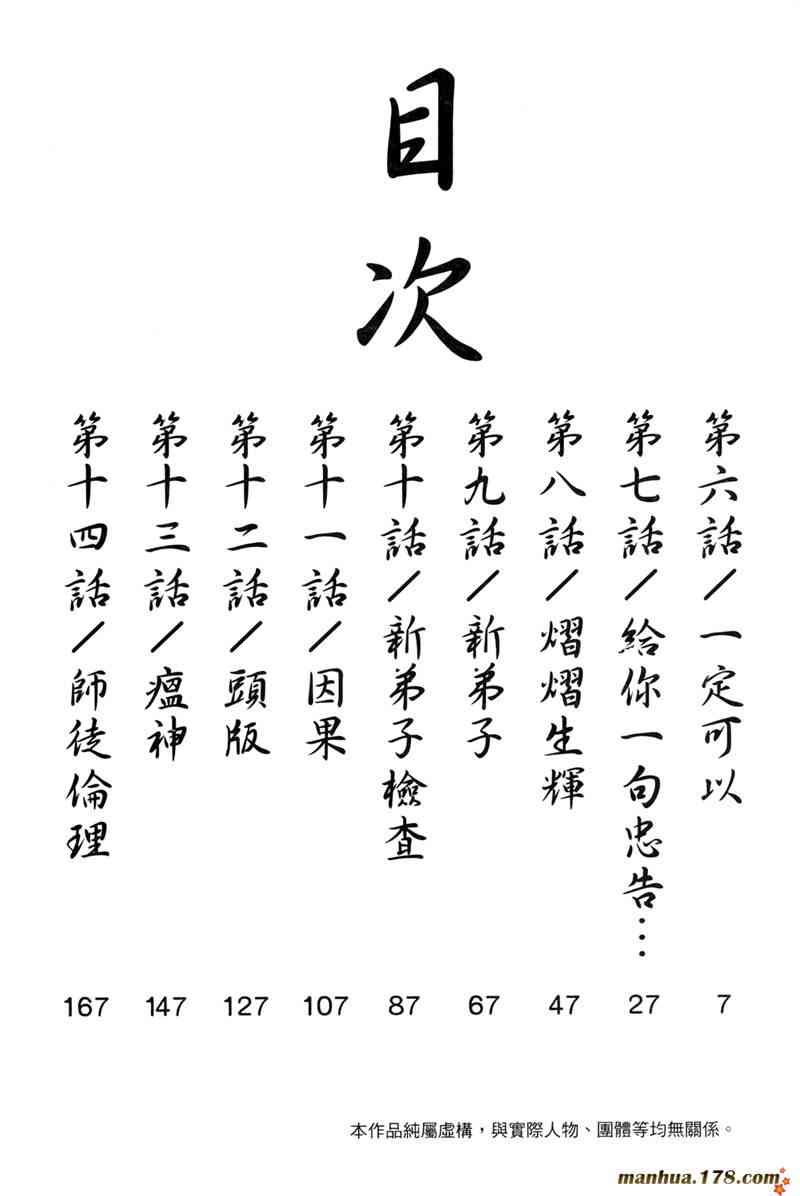 目次
第六話／一定可以 7
第七話／給你一句忠告… 27
第八話／熠熠生輝 47
第九話／新弟子 67
第十話／新弟子檢查 87
第十一話／因果 107
第十二話／頭版 127
第十三話／瘟神 147
第十四話／師徒倫理 167
本作品純屬虛構，與實際人物、團體等均無關係。
manhua.178.com